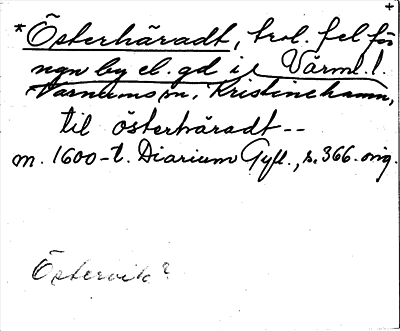 +
*Österhäradt, trol. fel för
ngn by el. gd i Värml.
Varnums sn, Kristinehamn,
til österhäradt--
m. 1600-t. Diarium Gyll., s. 366. orig.
Östervik?